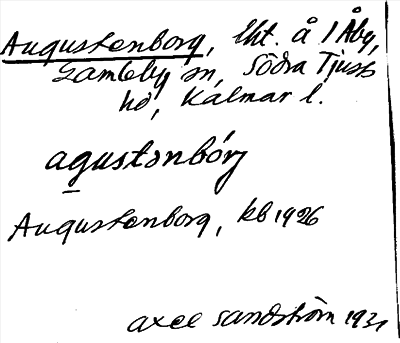 Augustenborg, lht. å 1 Åby,
Gamleby sn, Södra Tjust
hd, Kalmar l.
agustənbórj
Augustenborg, kb 1926
Axel Sandström 1931